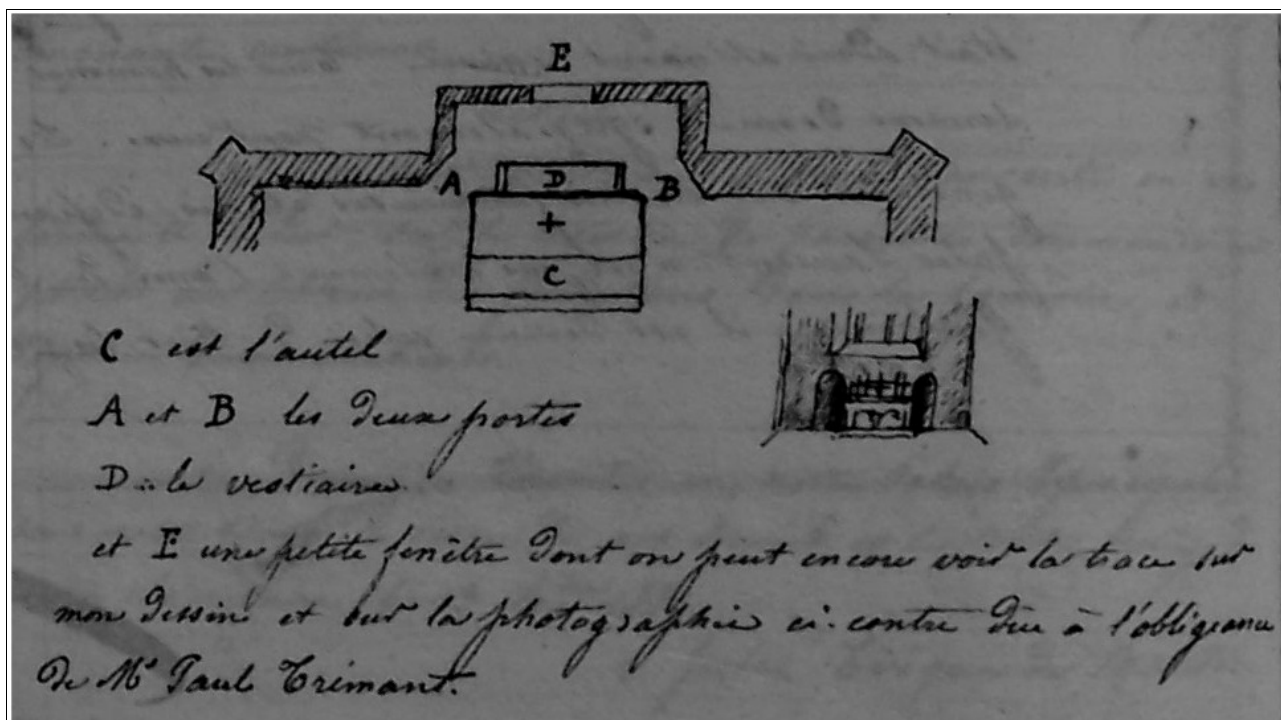 E
A D B
+
C
C est l'autel
A et B les deux portes
D..le vestiaire
et E une petite fenêtre dont on peut encore voir la trace sur
mon dessin et sur la photographie ci-contre due à l'obligeance
de Mr Paul Trémant.